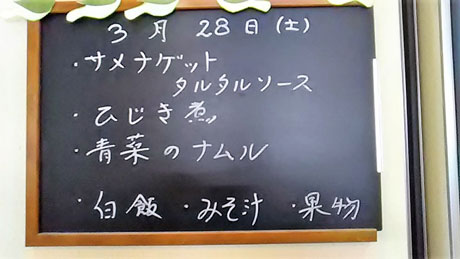 3月28日(土)
・サメナゲット
タルタルソース
・ひじき煮
・青菜のナムル
・白飯 ・みそ汁 ・果物